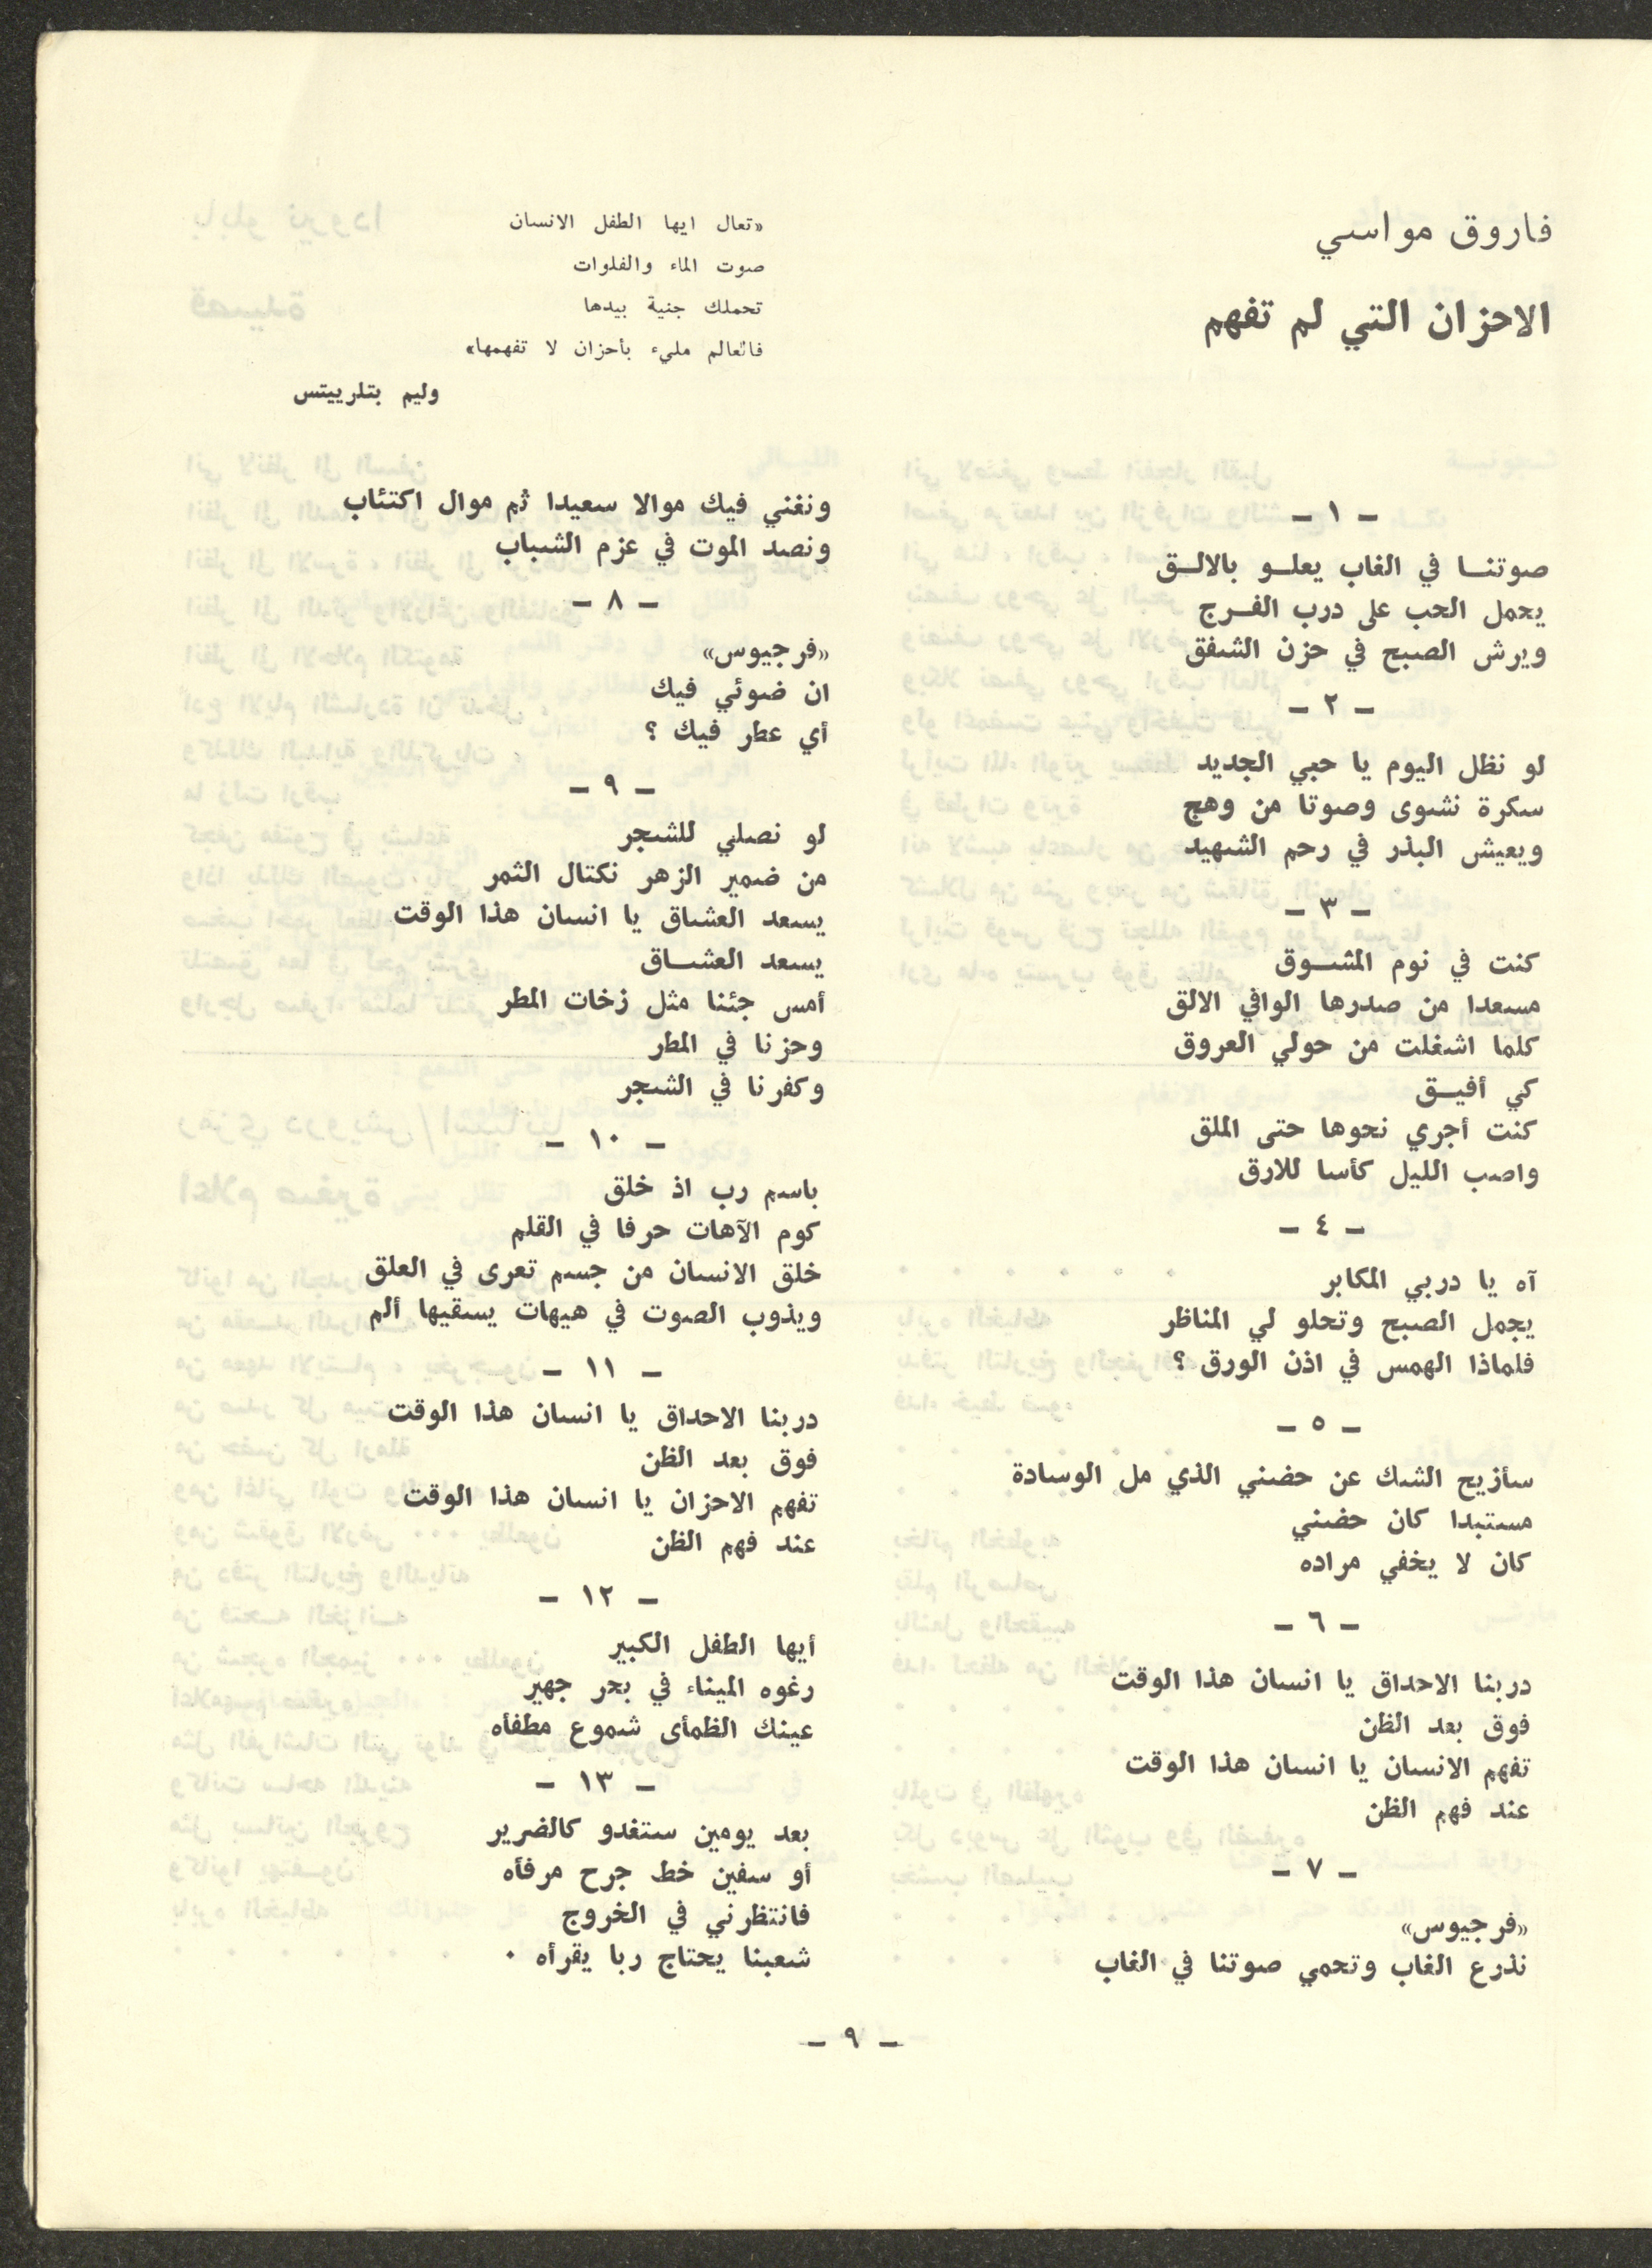 فاروق مواسي
الاحزان التي لم تفهم
«تعال ايها الطفل الانسان
صوت الماء والفلوات
تحملك جنية بيدها
فالعالم مليء بأحزان لا تفهمها»
وليم بتلرييتس
- ١ -
صوتنــا في الغاب يعلــو بالالــق
يحمل الحب على درب الفــرج
ويرش الصبح في حزن الشفق
- ٢ -
لو نظل اليوم يا حبي الجديد
سكرة نشوى وصوتا من وهج
ويعيش البذر في رحم الشهيد
- ٣ -
كنت في نوم المشــوق
مسعدا من صدرها الوافي الالق
كلما اشغلت من حولي العروق
كي أفيــق
كنت أجري نحوها حتى الملق
واصب الليل كأسا للارق
- ٤ -
آه يا دربي المكابر
يجمل الصبح وتحلو لي المناظر
فلماذا الهمس في اذن الورق ؟
- ٥ -
سأزيح الشك عن حضني الذي مل الوسادة
مستبدا كان حضني
كان لا يخفي مراده
- ٦ -
دربنا الاحداق يا انسان هذا الوقت
فوق بعد الظن
تفهم الانسان يا انسان هذا الوقت
عند فهم الظن
- ٧ -
«فرجيوس»
نذرع الغاب وتحمي صوتنا في الغاب
ونغني فيك موالا سعيدا ثم موال اكتئاب
ونصد الموت في عزم الشباب
- ٨ -
«فرجيوس»
ان ضوئي فيك
أي عطر فيك ؟
- ٩ -
لو نصلي للشجر
من ضمير الزهر نكتال الثمر
يسعد العشاق يا انسان هذا الوقت
يسعد العشــاق
أمس جئنا مثل زخات المطر
وحزنا في المطر
وكفرنا في الشجر
- ١٠ -
باسم رب اذ خلق
كوم الآهات حرفا في القلم
خلق الانسان من جسم تعرى في العلق
ويذوب الصوت في هيهات يسقيها ألم
- ١١ -
دربنا الاحداق يا انسان هذا الوقت
فوق بعد الظن
تفهم الاحزان يا انسان هذا الوقت
عند فهم الظن
- ١٢ -
أيها الطفل الكبير
رغوه الميناء في بحر جهير
عينك الظمأى شموع مطفأه
- ١٣ -
بعد يومين ستغدو كالضرير
أو سفين خط جرح مرفأه
فانتظرني في الخروج
شعبنا يحتاج ربا يقرأه ٠
- ٩ -